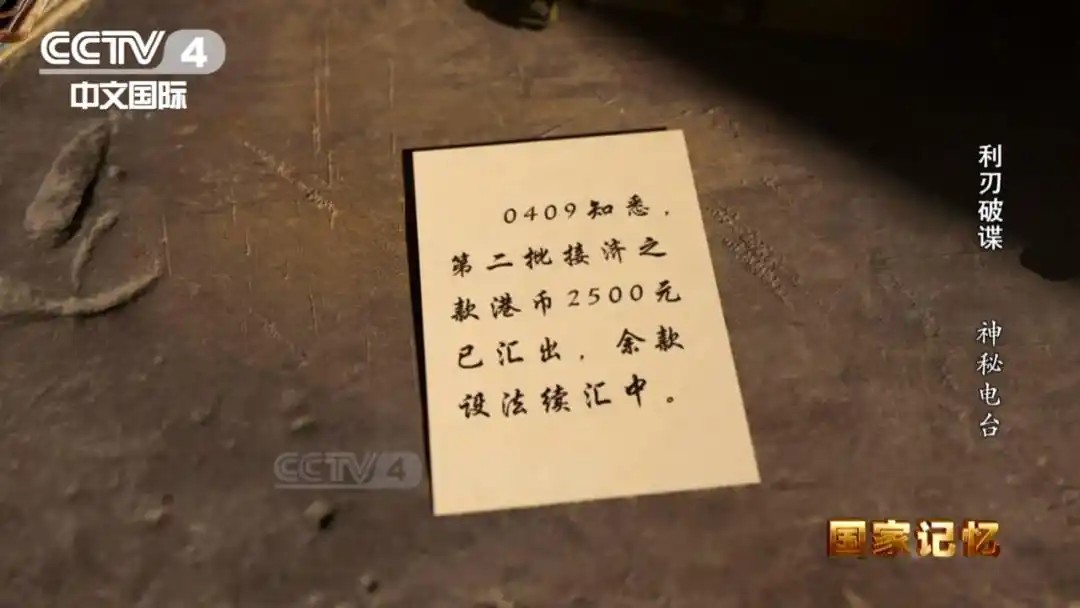 CCTV 4
中文国际
利刃破谍 神秘电台
0409知悉，
第二批接济之
款港币2500元
已汇出，余款
设法续汇中。
CCTV 4
国家记忆